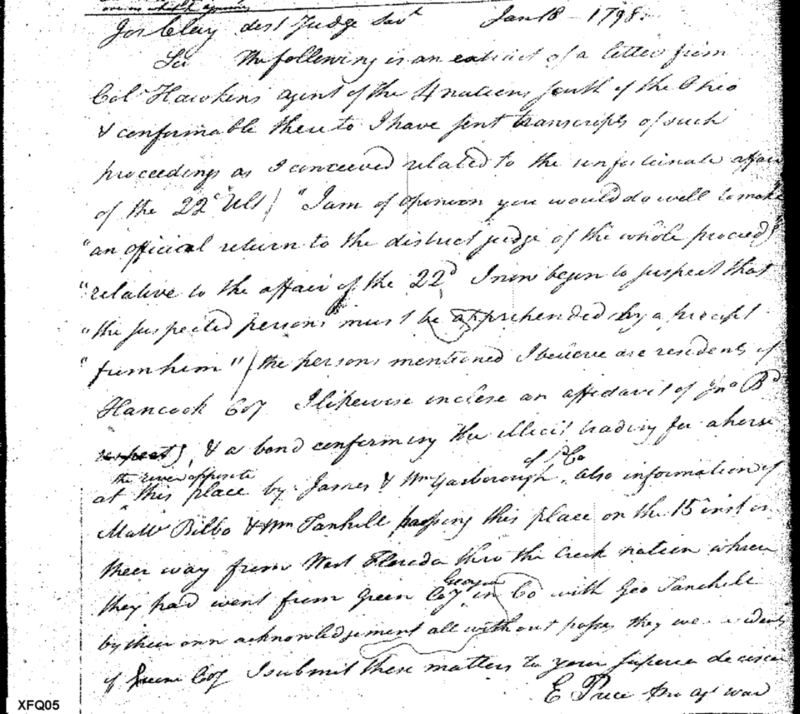 Jos Clay dist Judge Savh Jan 18 - 1798.
Sir The following is an extract of a letter from
Col. Hawkins agent of the 4 nations south of the Ohio
& conformable there to I have sent transcripts of such
proceedings as I conceived related to the unfortunate affair
of the 22d Ult / "I am of opinion you would do well to make
"an official return to the district judge of the whole proceedgs
"relative to the affair of the 22d I now begin to suspect that
"the suspected persons must be apprehended by a precept
"from him" / the persons mentioned I believe are residents of
Hancock Coy I likewise inclose an affidavit of Jno Bd
& a bond confirming the illicit trading for a horse
the river opposite of sd Co
at this place by James & Wm Yarborough, also information of
Mattw Bilbo & Wm Tanhill, passing this place on the 15 inst on
their way from West Florida thro the Creek nation where
Georgia
they had went from Green Coy in Co with Geo Tanehill
by their own acknowledgement all without pass, they were residents
of Green Coy I submit these matters to your superior decision
E Price
XFQ05